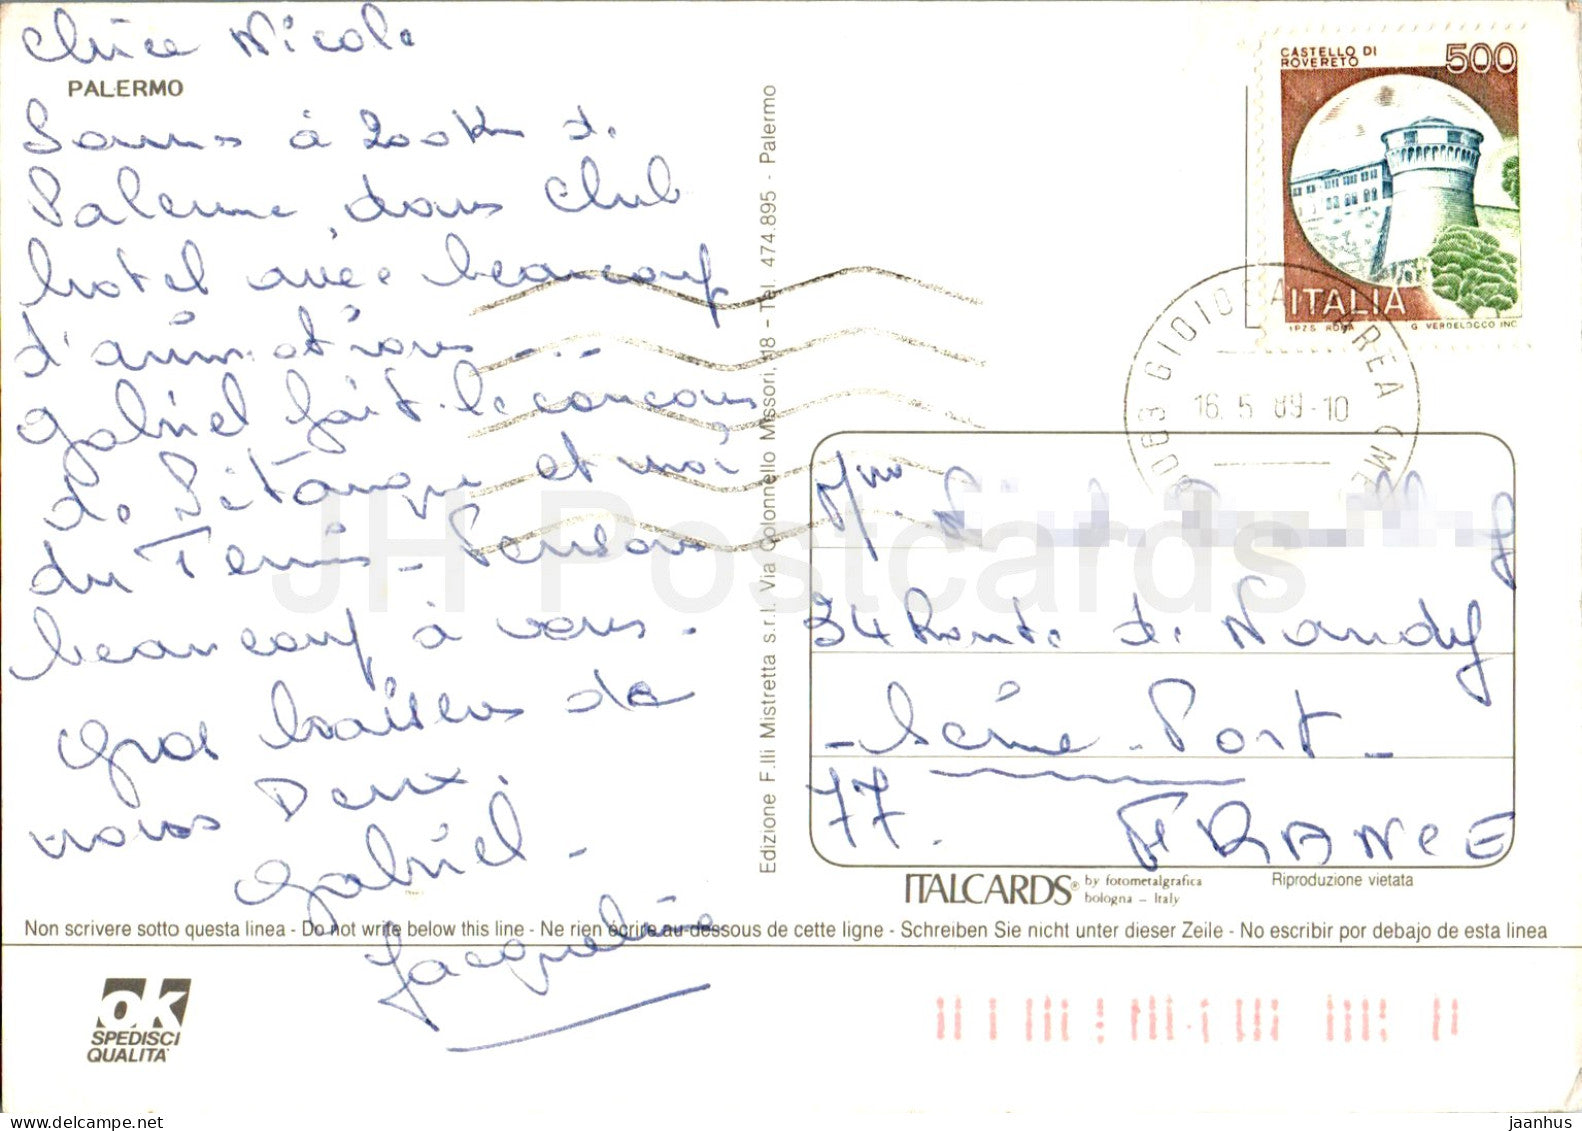 Chère Nicole
PALERMO
Sommes à 200 Km de
Palerme, dans Club
hotel avec beaucoup
d'animations - . -
Gabriel fait le concours
de Pétanque et moi
du Tennis - Pensons
beaucoup à vous.
Gros baisers de
nous Deux.
Gabriel -
Jacqueline
Edizione F.lli Mistretta s.r.l. Via Colonnello Missori, 18 - Tel. 474.895 - Palermo
CASTELLO DI
ROVERETO
500
ITALIA
I.P.Z.S. ROMA G. VERDELOCCO INC.
GIOIOSA MAREA (ME)
16.5.89-10
Mme
34 Route de Nandy
- Seine - Port -
77. FRANCE
ITALCARDS® by fotometalgrafica
bologna – Italy
Riproduzione vietata
Non scrivere sotto questa linea - Do not write below this line - Ne rien écrire au-dessous de cette ligne - Schreiben Sie nicht unter dieser Zeile - No escribir por debajo de esta linea
OK
SPEDISCI
QUALITA'
JH Postcards
jaanhus @ delcampe.net